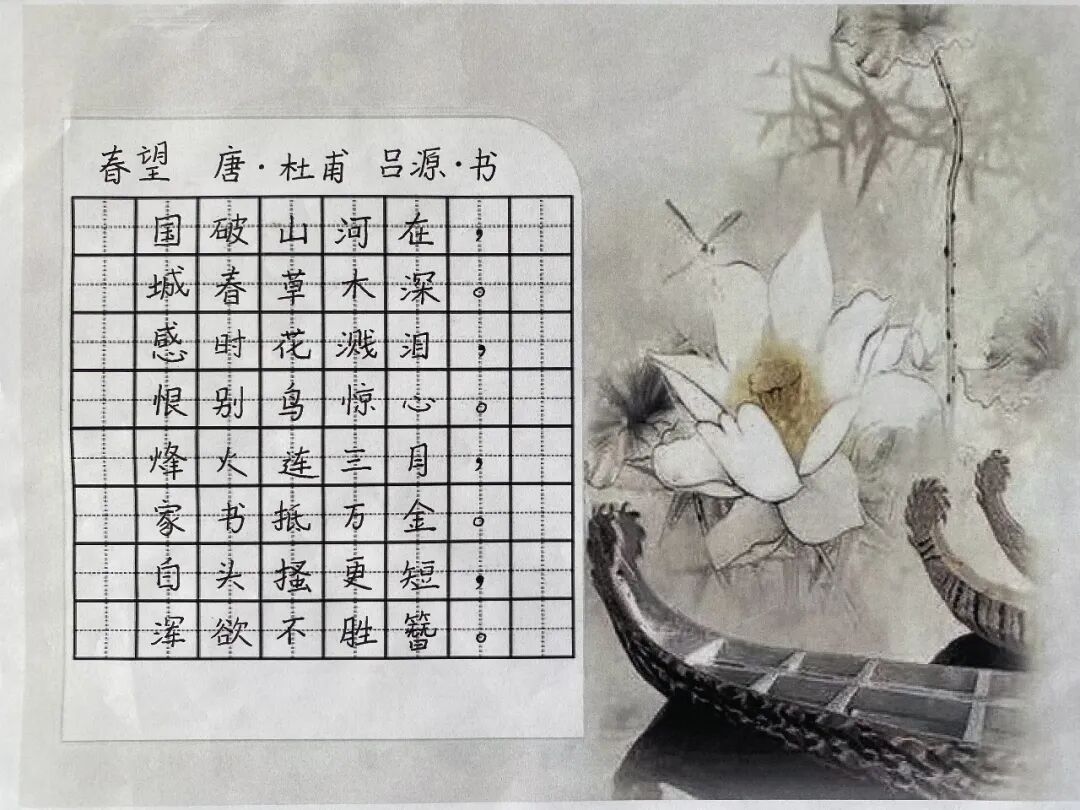 春望 唐·杜甫 吕源·书
国破山河在，
城春草木深。
感时花溅泪，
恨别鸟惊心。
烽火连三月，
家书抵万金。
白头搔更短，
浑欲不胜簪。